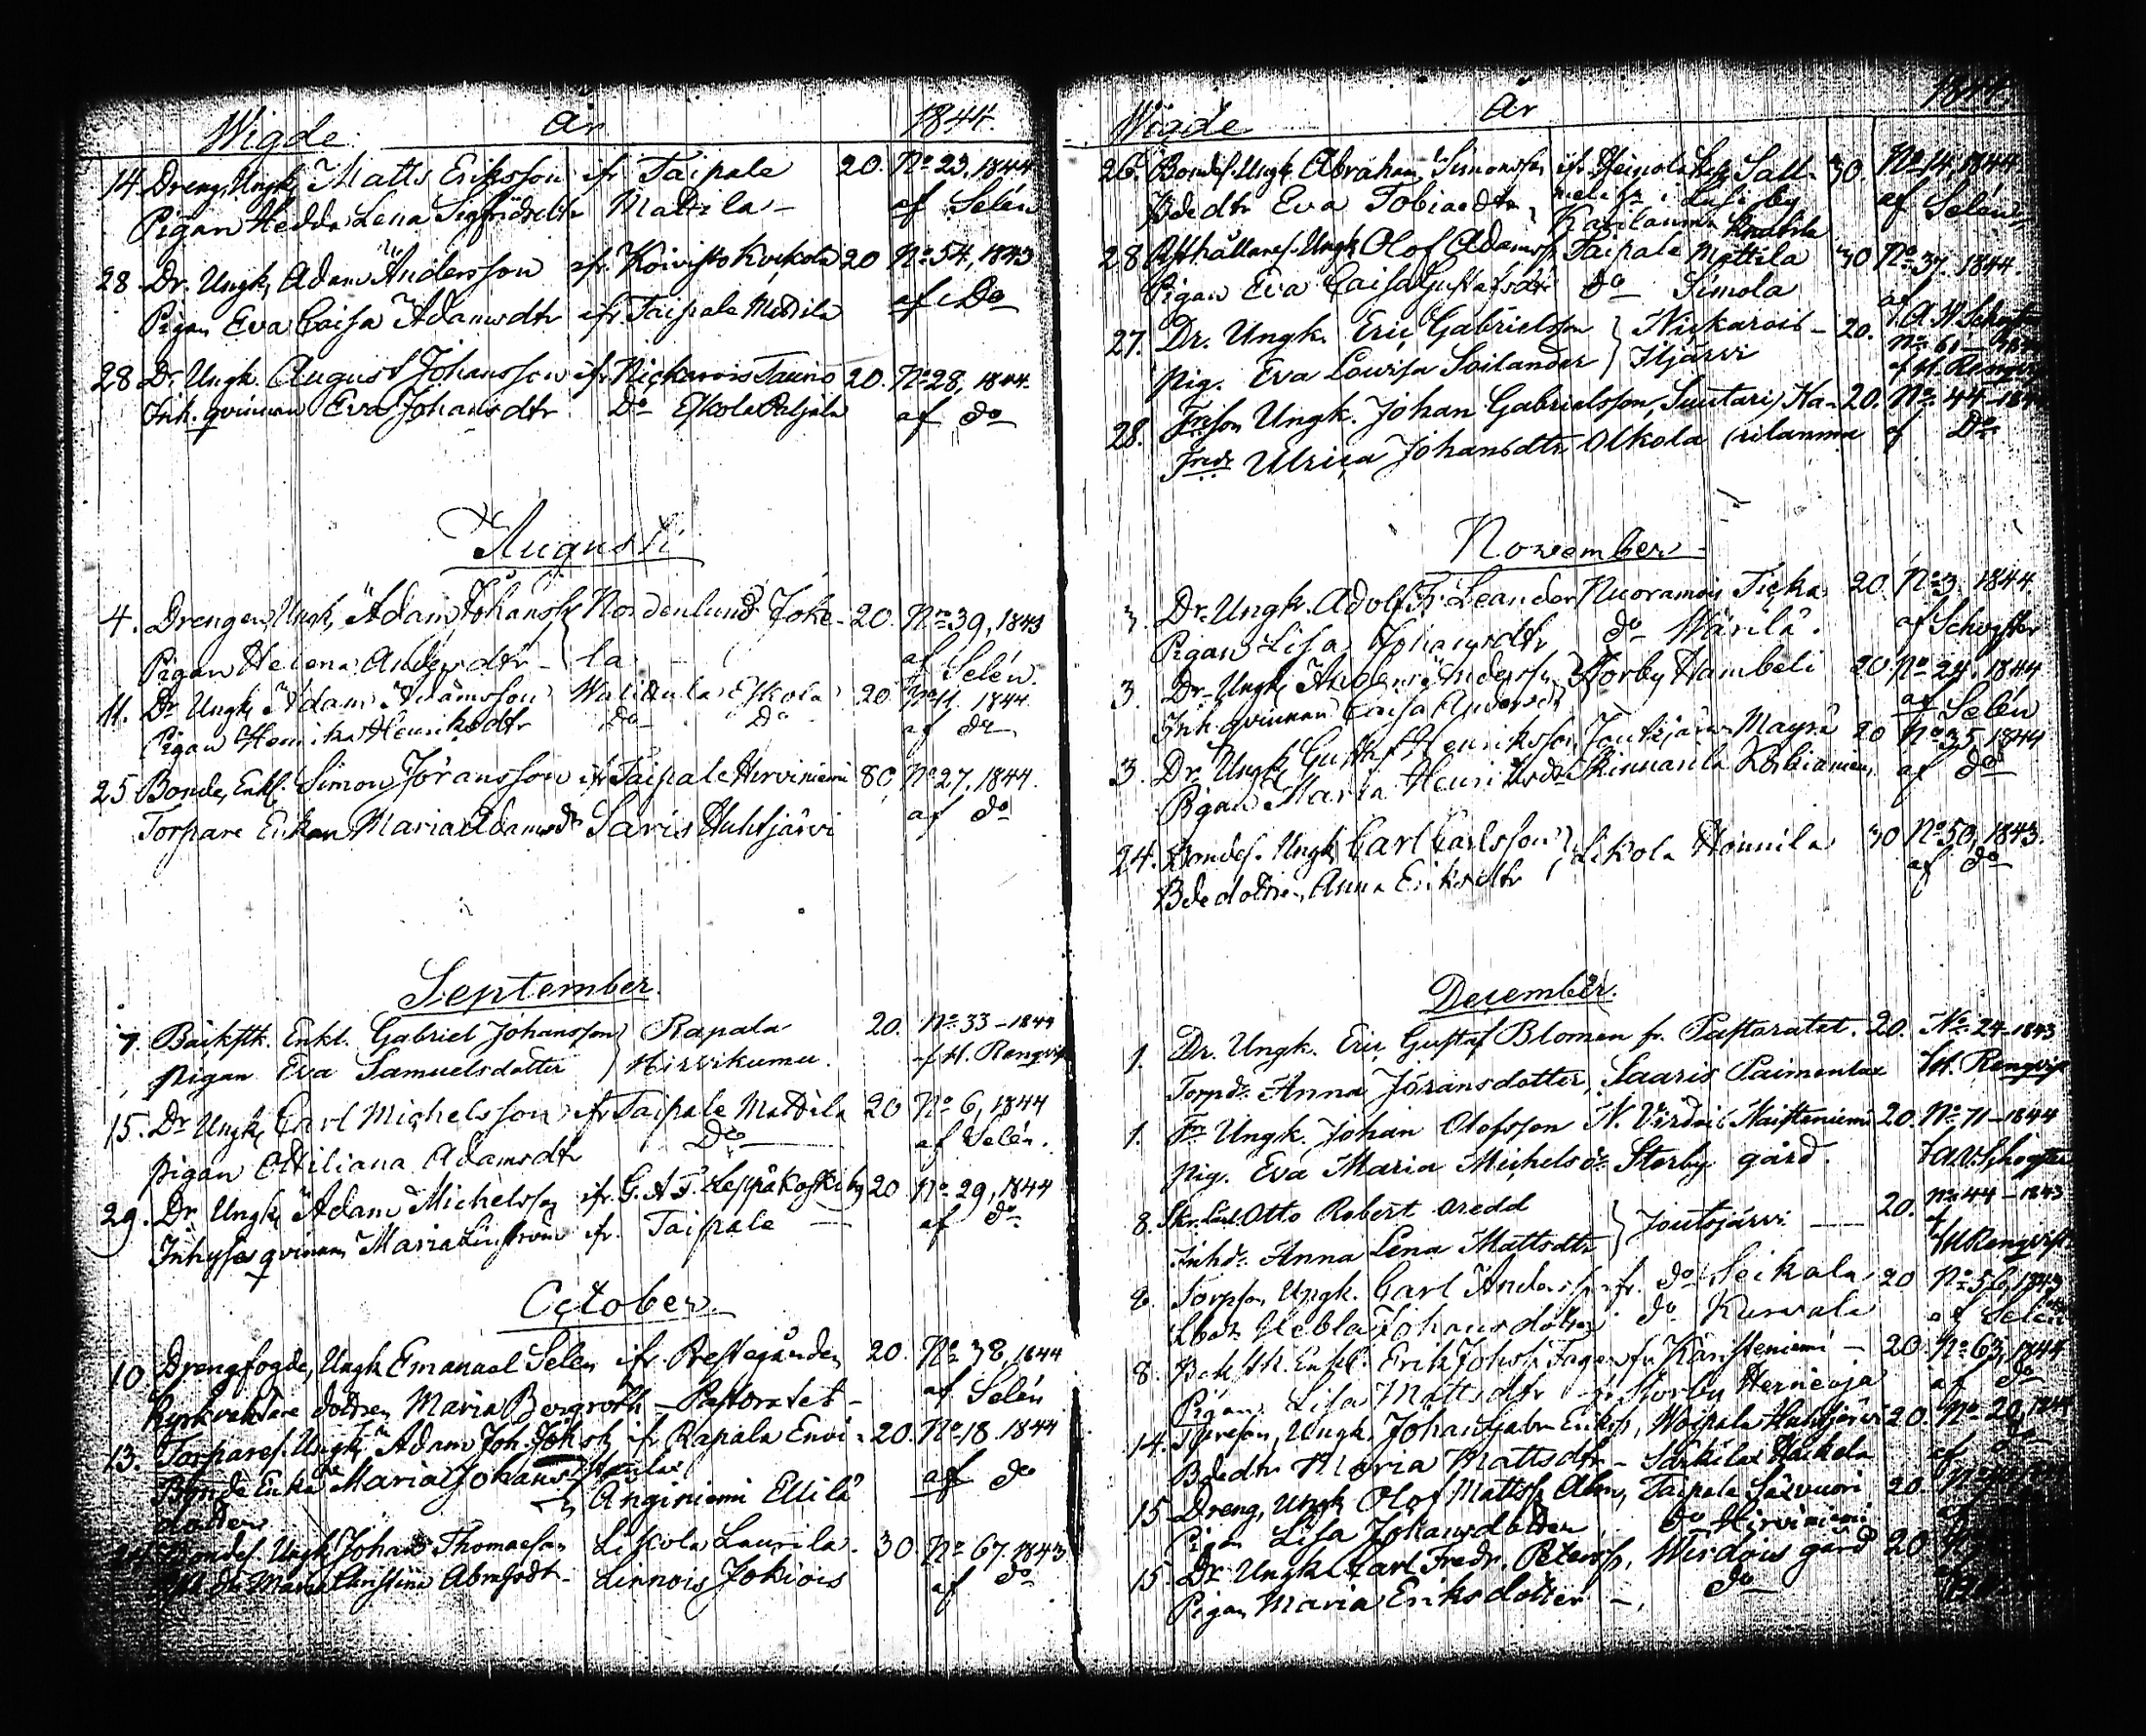 Wigde år 1844.
14. Dreng, Ungk, Matts Eriksson ifr Taipale 20. No 23, 1844
Pigan Hedda Lena Sigfridsdtr Mattila — af Selén
28 Dr. Ungk, Adam Andersson ifr. Koivisto 20 No 54, 1843
Pigan Eva Caisa Adamsdtr ifr. Taipale Mattila af Do
28 Dr. Ungk. August Johansson ifr Nickarois Tauno 20. No 28, 1844.
Inh. qvinnan Eva Johansdtr Do Eskola Paljala af do
Augusti
4. Drengen Ungk, Adam Johanss Nordenlund Joke- 20. No 39, 1843
Pigan Helena Andersdtr — la — af Selén.
11. Dr Ungk, Adam Adamsson Eskola 20 No 11. 1844.
Pigan Henrika Henriksdtr do Do af do
25 Bonde, Enkl. Simon Joransson ifr Taipale Hirviniemi 80 No 27, 1844.
Torpare Enkan Maria Adamsdr Saris Huhtjärvi af do
September.
7. Backstk. Enkl. Gabriel Johansson Rapala 20. No 33 – 1844
pigan Eva Samuelsdotter Hirvikumu. af H. Renqvist
15. Dr Ungk, Carl Michelsson ifr Taipale Mattila 20 No 6, 1844
pigan Ottiliana Adamsdtr Do af Selén.
29. Dr Ungk, Adam Michelsson ifr. G. A. F. Leppäkoski by 20 No 29, 1844
Inhyses qvinnan Maria Linström ifr. Taipale — af do
October
10 Drengfogde, Ungk Emanuel Selen ifr. Prestegården 20. No 38, 1844
Kyrkvaktare dottren Maria Bergroth — Pastoratet — af Selén
13. Torpares. Ungk, Adam Joh. Johss ifr Rapala Envi- 20. No 18 1844
Bonde Enka Maria Johans af do
dotter Anginiemi Ellilä
Bondes. Ungk Johan Thomasson Liikola Laurila. 30. No 67. 1843
Maria Christina Abrahsdt — Linnois Jokiois af do
Wigde år 1844.
26. Bondes. Ungk, Abraham Simonsson ifr. Heinola Sall- 30. No 14, 1844
Bdedtr Eva Tobiaedtr, i Lusi by af Selén
Karilanma
28 Ungk Olof Adamss Taipale Mattila 30 No 37. 1844.
Pigan Eva Caisa Gustafsdtr do Simola af
27. Dr. Ungk. Eric Gabrielsson Nickarois – 20.
Pig. Eva Lowisa Soilander Iljärvi af H. Renqv.
28. Ungk. Johan Gabrielsson, Suutari, Ka- 20. No 44 – 184
Ulrica Johansdtr Olkola rilanma af Do
November
3. Dr. Ungk. Adolf Fr. Leander Nuoramois Ticka 20 No 3, 1844.
Pigan Lisa Johansdtr do Wärilä. af Schogster
3. Dr. Ungk, Andersson Storby Hambeli 20 No 24, 1844
Inh. qvinnan Caisa Andersdr af Selén
3. Dr. Ungk, Gustaf Henriksson, Joutsjärvi Mäyrä 20 No 35, 1844
Pigan Maria Henriksdtr af do
24. Bondes. Ungk, Carl Carlsson Liikola Hannila 30 No 50, 1843.
Bde dottren, Anna Eriksdtr af do
December.
1. Dr. Ungk. Eric Gustaf Bloman fr. Pastoratet. 20. No 24–1843
Torpdr Anna Jöransdotter, Saaris Paimenlax f H. Renqvist
1. Ungk. Johan Olofsson N. Virdois Haistenniemi 20. No 71–1844
pig. Eva Maria Michelsdr Storby gård.
8. Otto Robert Aredd 20. No 44 – 1843
Inhdr Anna Lena Mattsdtr Joutsjärvi — af H Renqvist
8. Torpson, Ungk. Carl Anderss fr. do Seikala 20 No 56, 1843
Johansdotter do Kurvala af Selén
8. Backstk. Enkl. Erik Johss Fager fr Käristeniemi — 20 No 63, 1844
Pigan Lisa Mattsdtr fr Storby Herneoja af do
14. Ungk. Johan Gabr Erikss, Woipala Huhtjärvi 20. No 20, 1844
Bdedtr Maria Mattsdtr – Särkilax Heikola af do
15 Dreng, Ungk Olof Mattss Alen, Taipale 20.
Pigan Lisa Johansdotter, do Hirviniemi
15. Dr. Ungk. Carl Fredr. Peterss, Wirdois gård 20
Pigan Maria Eriksdotter — do